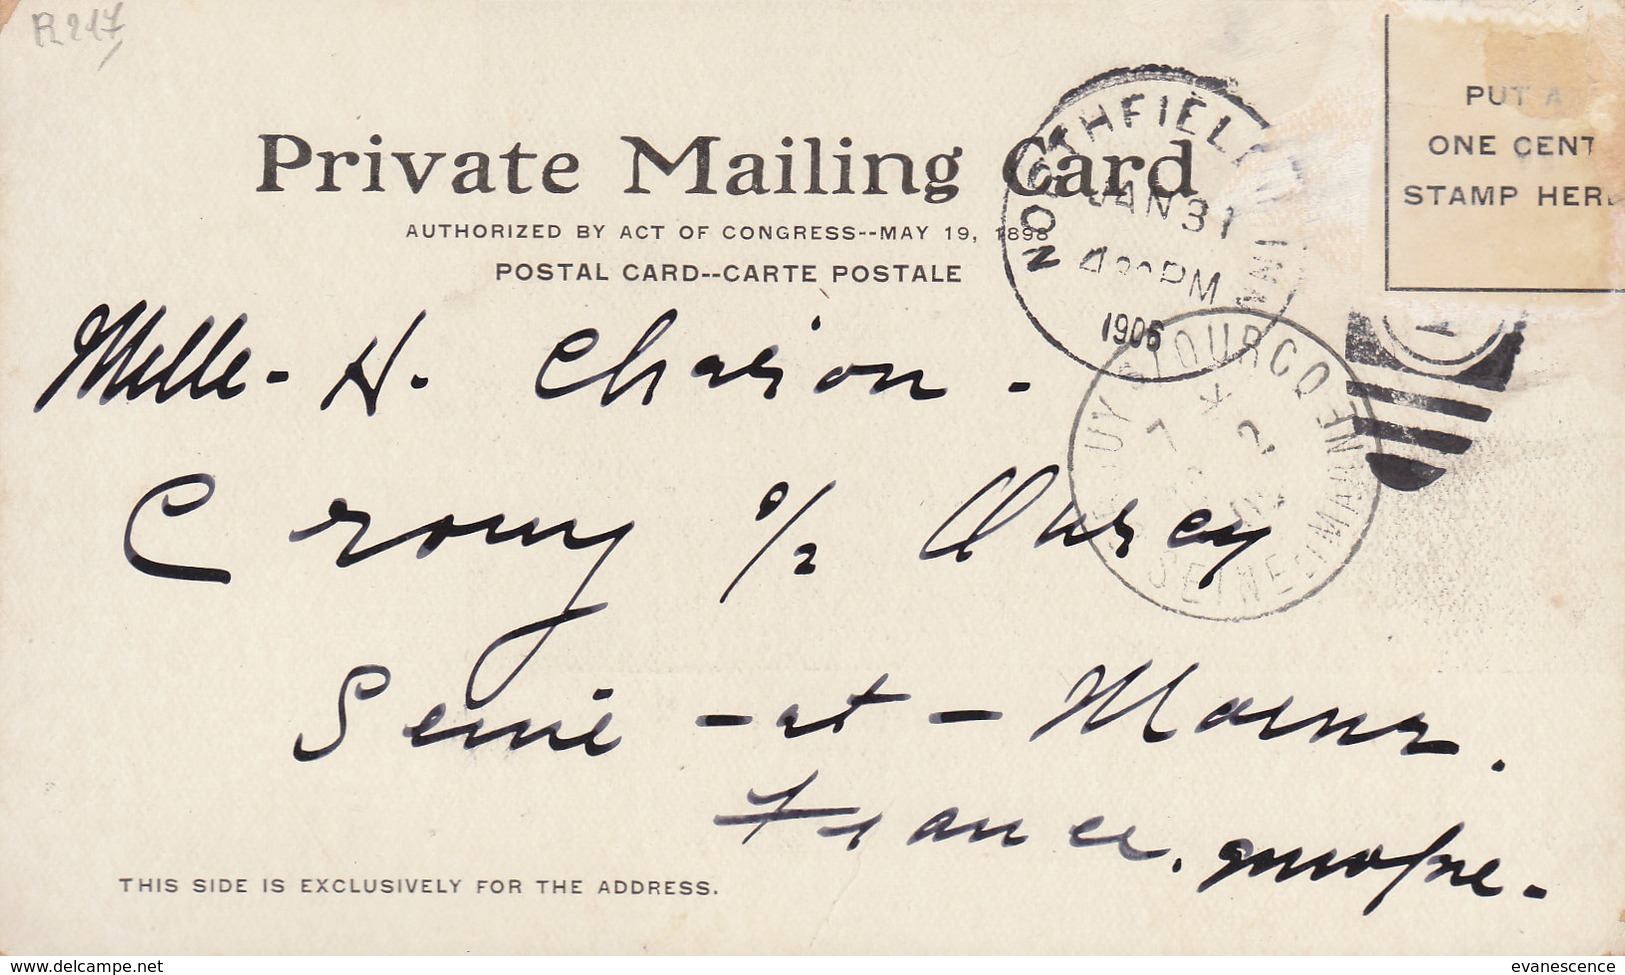 R217
Private Mailing Card
AUTHORIZED BY ACT OF CONGRESS--MAY 19, 1898
POSTAL CARD--CARTE POSTALE
PUT A
ONE CENT
STAMP HERE
NORTHFIELD MINN
JAN 31
4 PM
1906
TOURCQ
SEINE-ET-MARNE
7 2
Melle - H. Charion -
Crouy s/ Ourcq
Seine - et - Marne.
France. Europe -
THIS SIDE IS EXCLUSIVELY FOR THE ADDRESS.
www.delcampe.net
evanescence